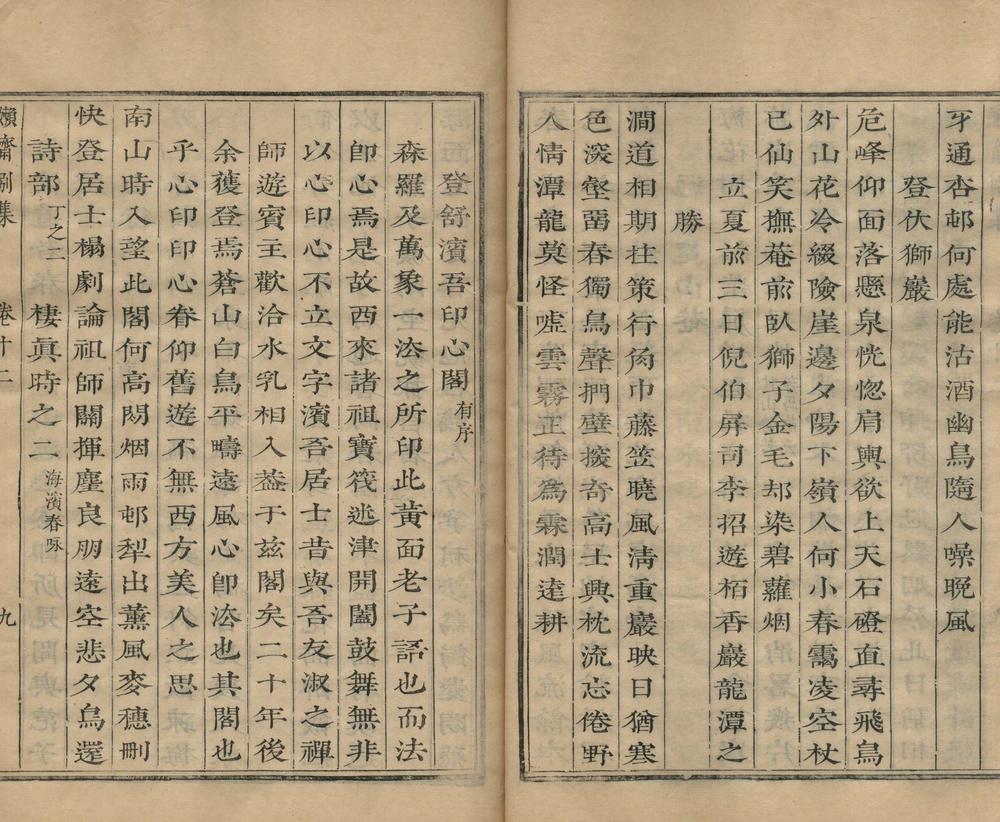 牙通杏邨何處能沽酒幽鳥隨人噪晚風
登伏獅巖
危峰仰面落懸泉恍惚肩輿欲上天石磴直尋飛鳥
外山花冷綴險崖邊夕陽下嶺人何小春靄凌空杖
已仙笑撫菴前臥獅子金毛却染碧蘿烟
立夏前三日倪伯屏司李招遊栢香巖龍潭之
勝
澗道相期拄策行角巾藤笠曉風淸重巖映日猶寒
色淡壑畱春獨鳥聲捫壁攓奇高士興枕流忘倦野
人情潭龍莫怪噓雲霧正待為霖潤逺耕
登舒濱吾印心閣有序
森羅及萬象一法之所印此黃面老子語也而法
卽心焉是故西來諸祖寶筏迷津開闔鼓舞無非
以心印心不立文字濱吾居士昔與吾友淑之禪
師遊賓主歡洽水乳相入葢于茲閣矣二十年後
余獲登焉蒼山白鳥平疇遠風心卽法也其閣也
乎心印印心眷仰舊遊不無西方美人之思
南山時入望此閣何高閟烟雨邨犁出薰風麥穗刪
快登居士榻劇論祖師關揮麈良朋遠空悲夕鳥還
詩部丁之三 棲眞時之二海濱春咏
嬾齋別集 卷十二 九